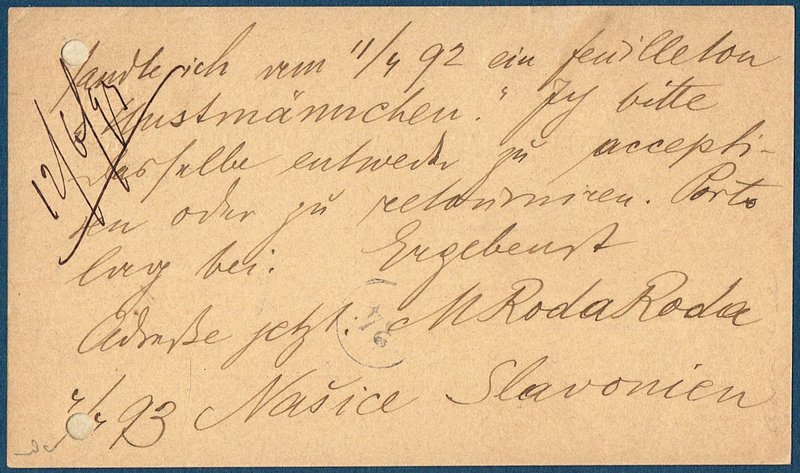 sandte ich vom 11/4 92 ein feuilleton
„Mustmännchen." Ich bitte
dasselbe entweder zu accepti-
ren oder zu retourniren. Porto
lag bei. Ergebenst
Adreße jetzt: M Roda Roda
93 Našice Slavonien
12/6/93